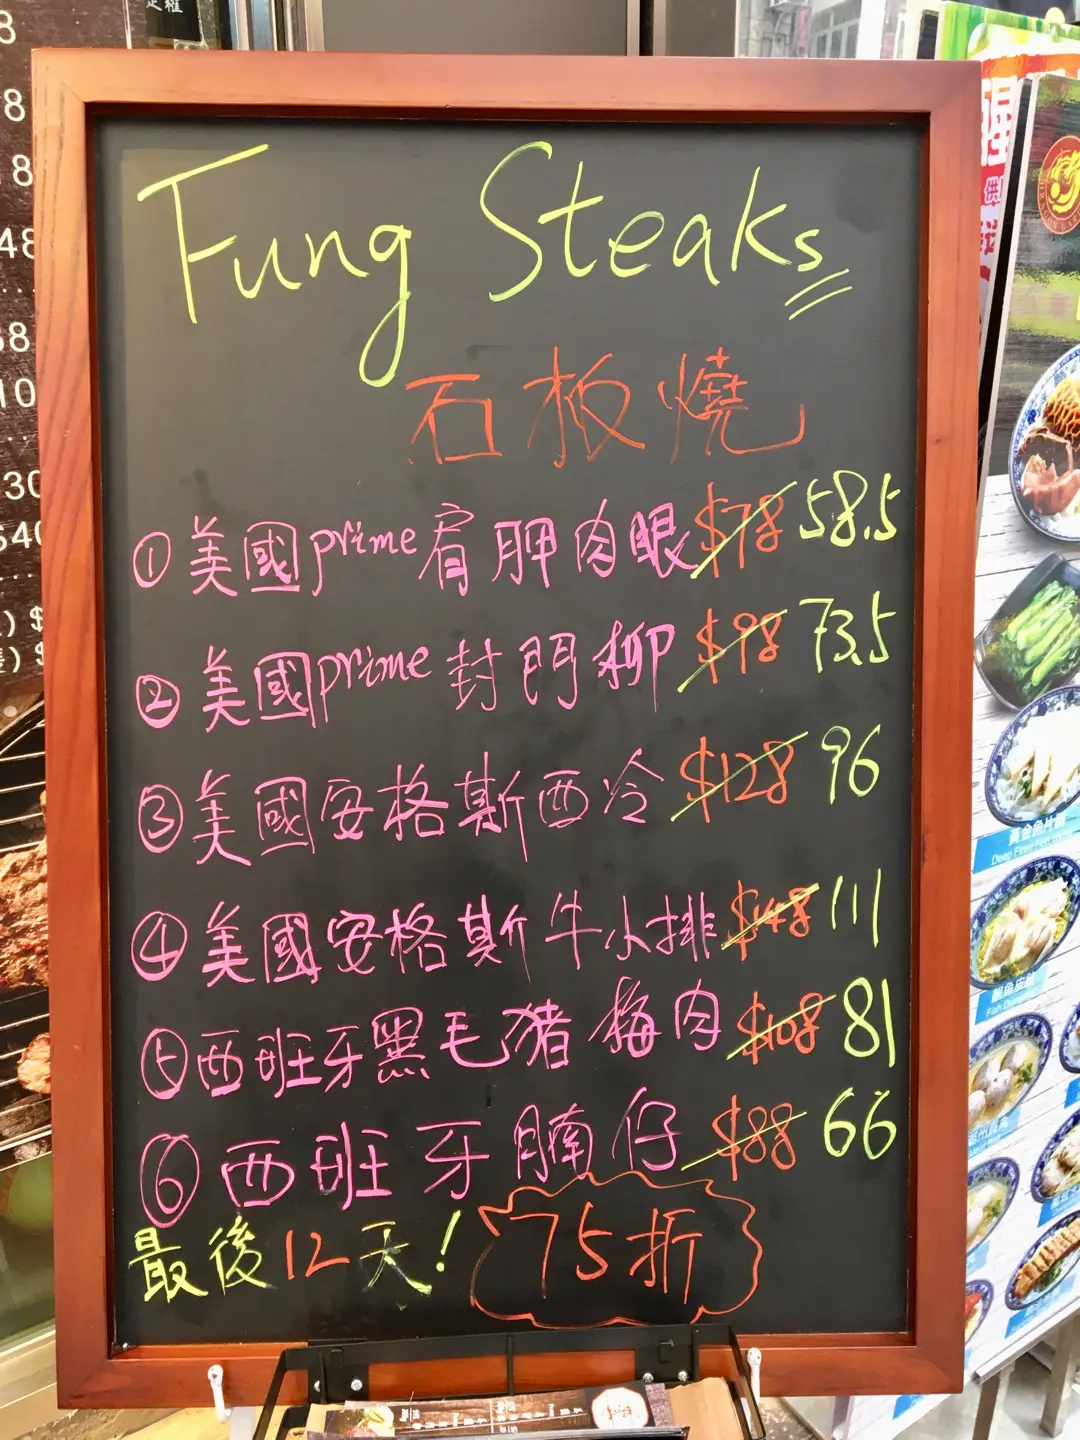 Fung Steaks
石板燒
① 美國prime肩胛肉眼 $78 58.5
② 美國prime封門柳 $98 73.5
③ 美國安格斯西冷 $128 96
④ 美國安格斯牛小排 $148 111
⑤ 西班牙黑毛豬梅肉 $108 81
⑥ 西班牙腩仔 $88 66
最後12天! 75折
黃金魚片頭